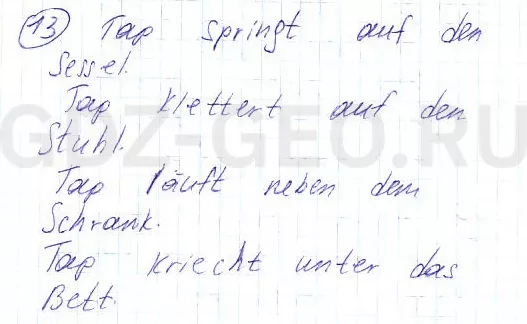 13 Tap springt auf den
Sessel.
Tap klettert auf den
Stuhl.
Tap läuft neben dem
Schrank.
Tap kriecht unter das
Bett.
GDZ-GEO.RU